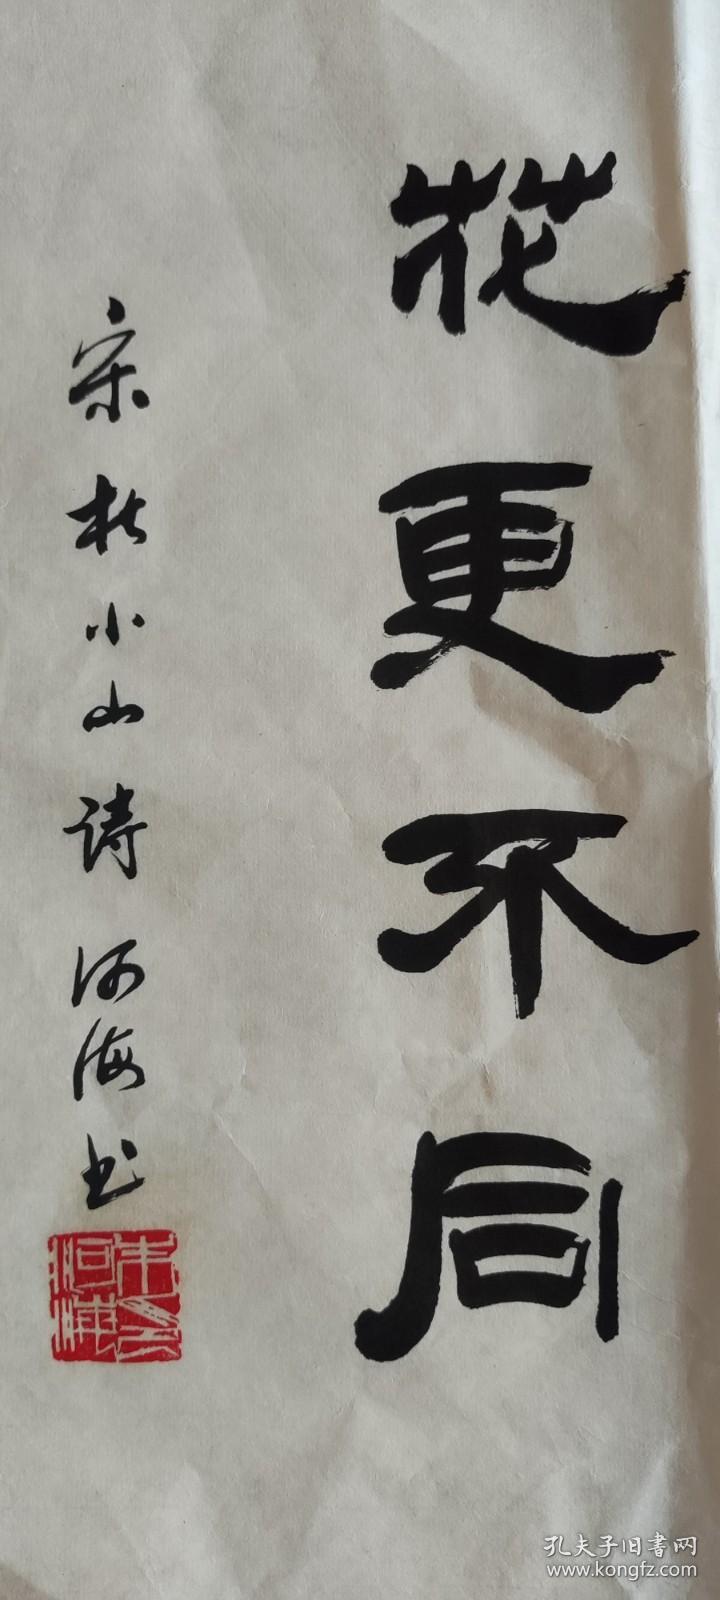 花更不同
宋杜小山诗河海书
朱河海印
孔夫子旧書网
www.kongfz.com